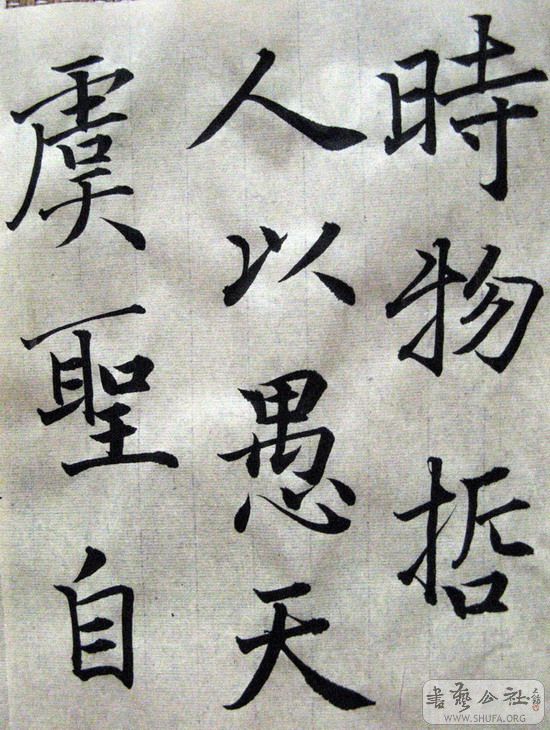 時物哲
人以愚天
虞聖自
書藝公社
WWW.SHUFA.ORG